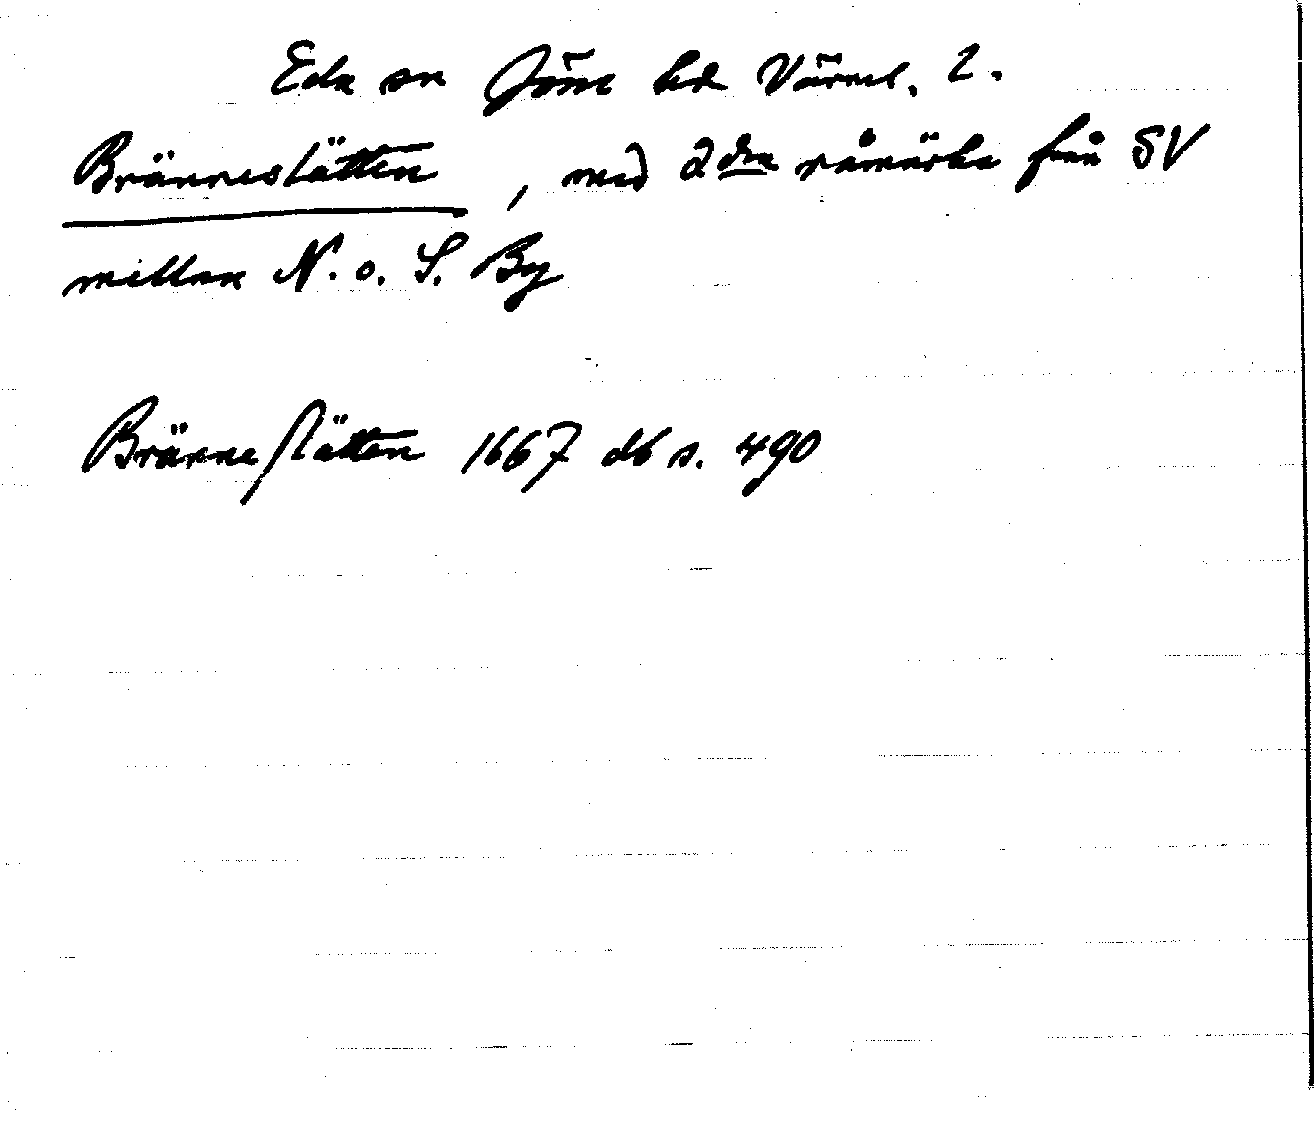 Eda sn Jösse hd Värml. l.
Bränneslätten, med 2dra råmärke från SV
mellan N. o. S. By
Bränneslätten 1667 db s. 490